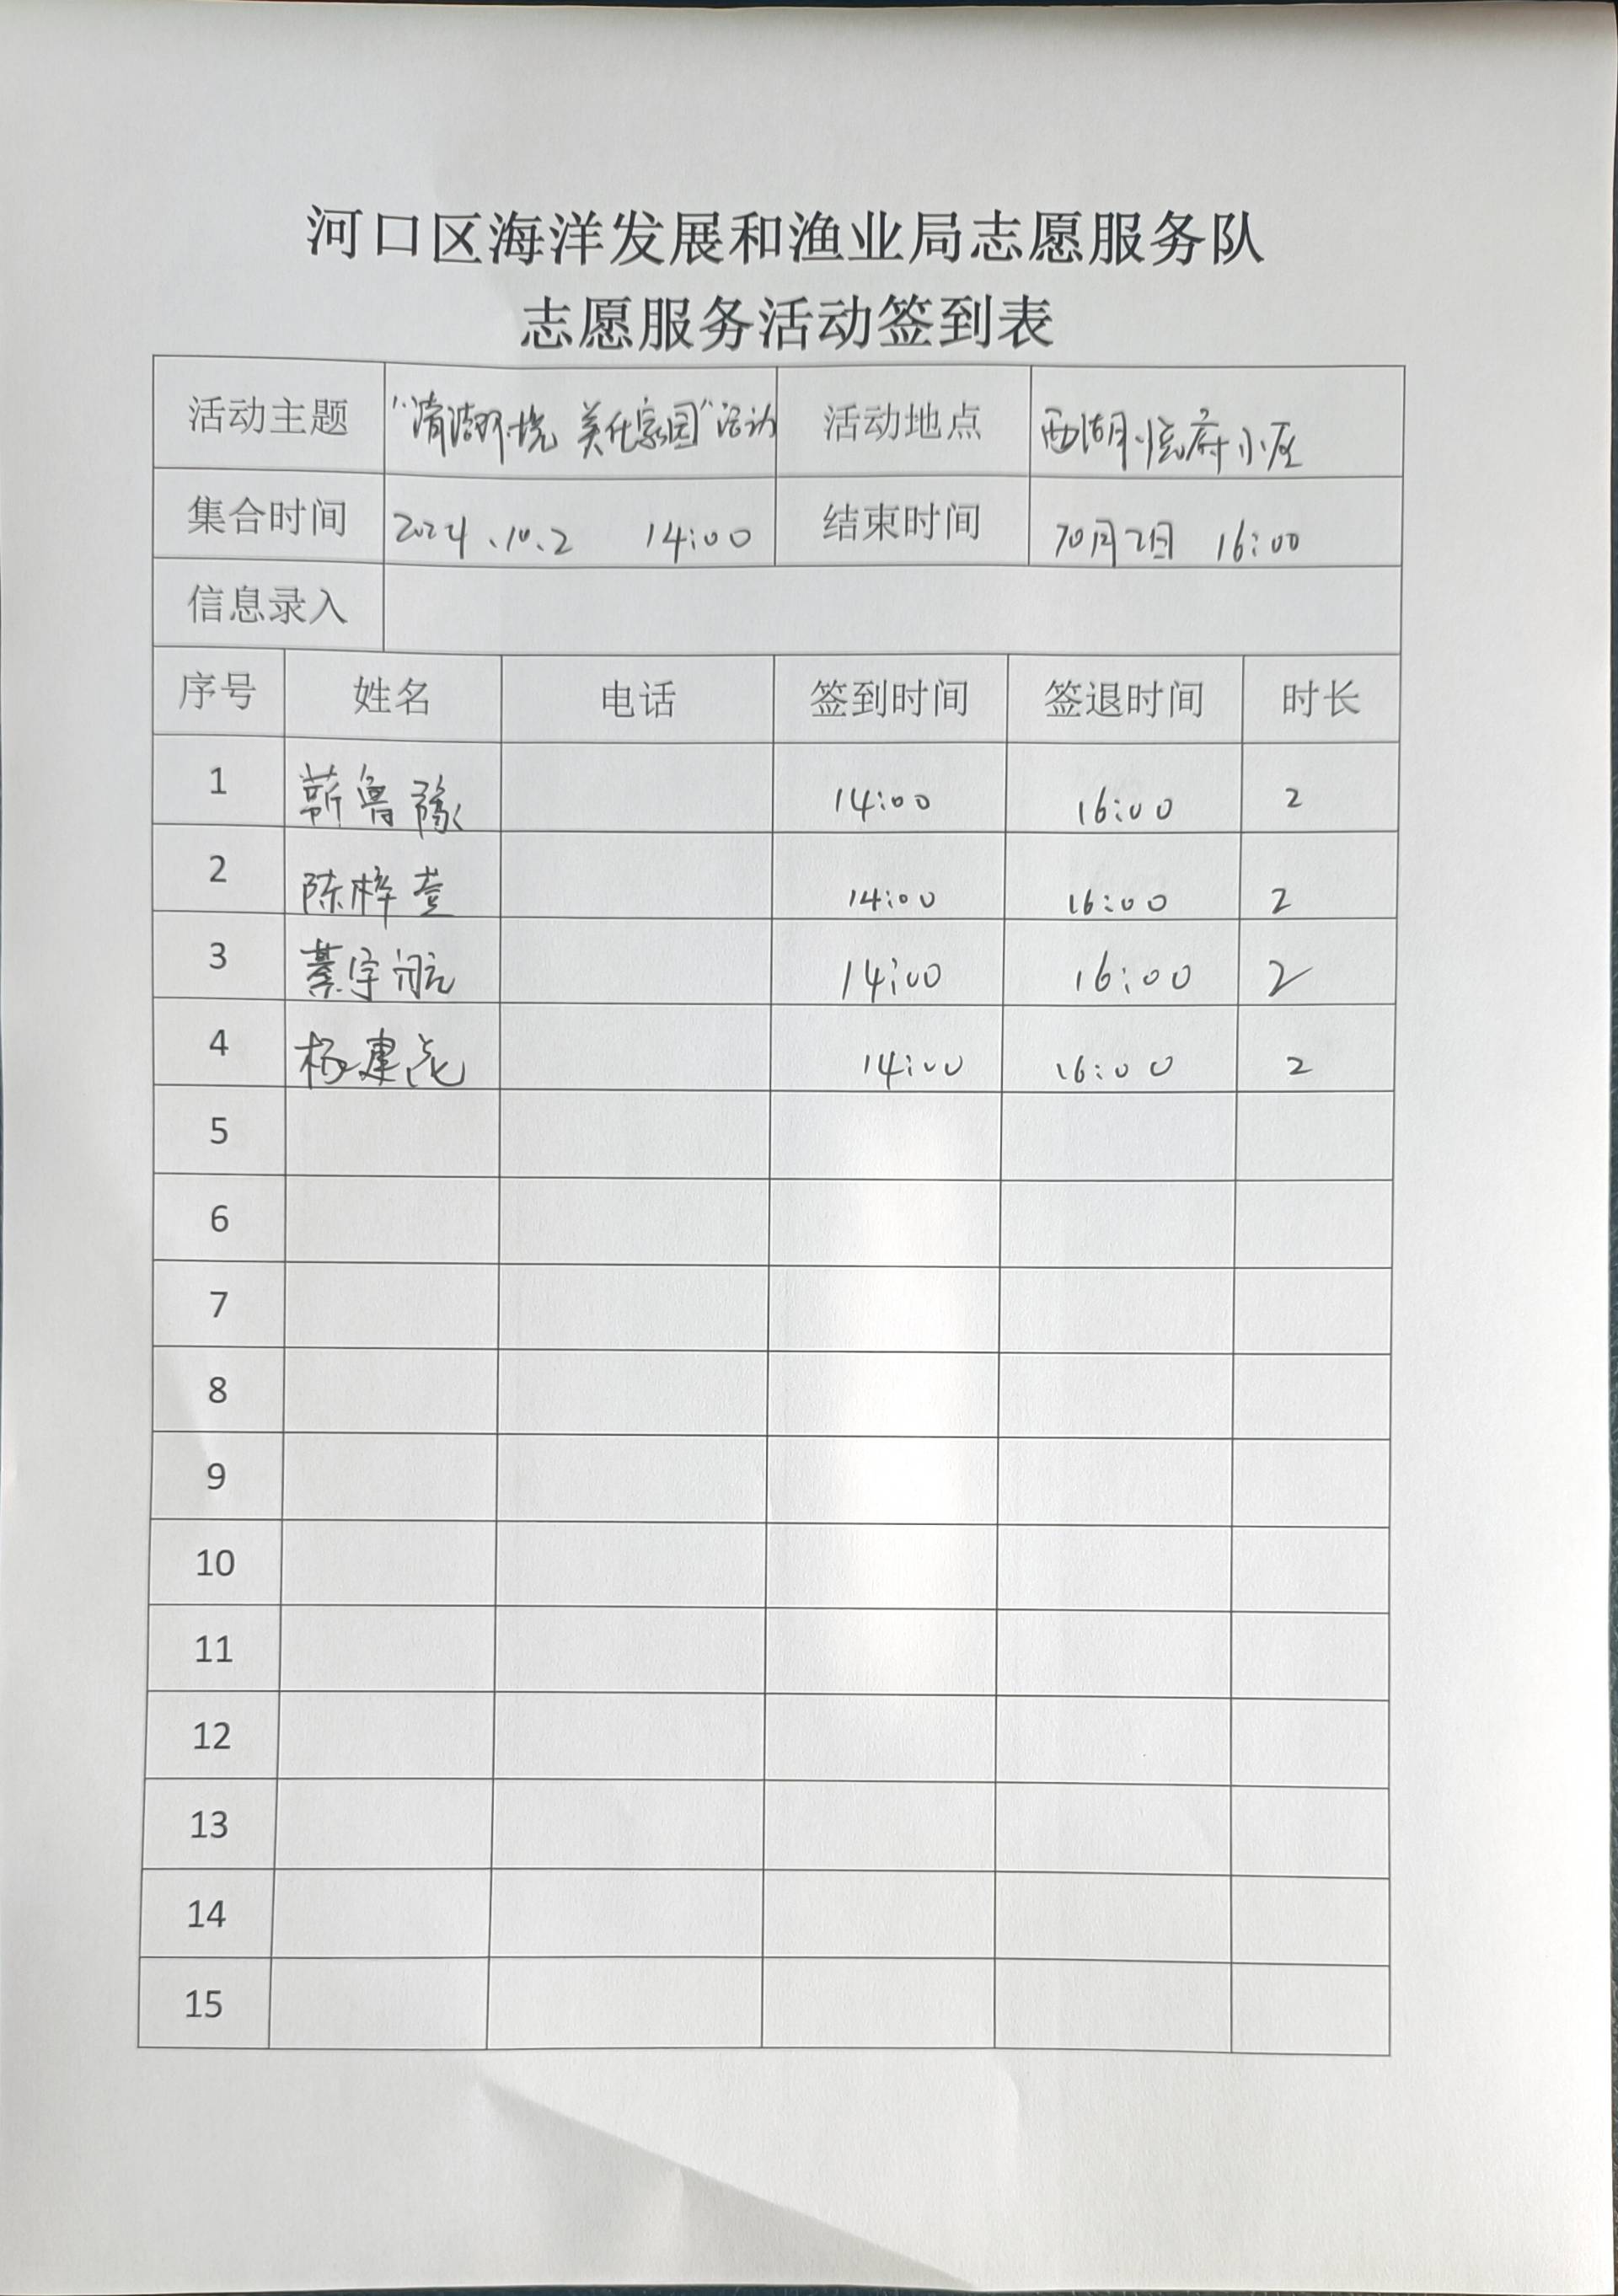 河口区海洋发展和渔业局志愿服务队
志愿服务活动签到表
活动主题 "清洁环境 美化家园"活动 活动地点 西湖悦府小区
集合时间 2024、10、2 14:00 结束时间 10月2日 16:00
信息录入
序号 姓名 电话 签到时间 签退时间 时长
1 靳鲁豫 14:00 16:00 2
2 陈梓萱 14:00 16:00 2
3 綦宇航 14:00 16:00 2
4 杨建 14:00 16:00 2
5
6
7
8
9
10
11
12
13
14
15